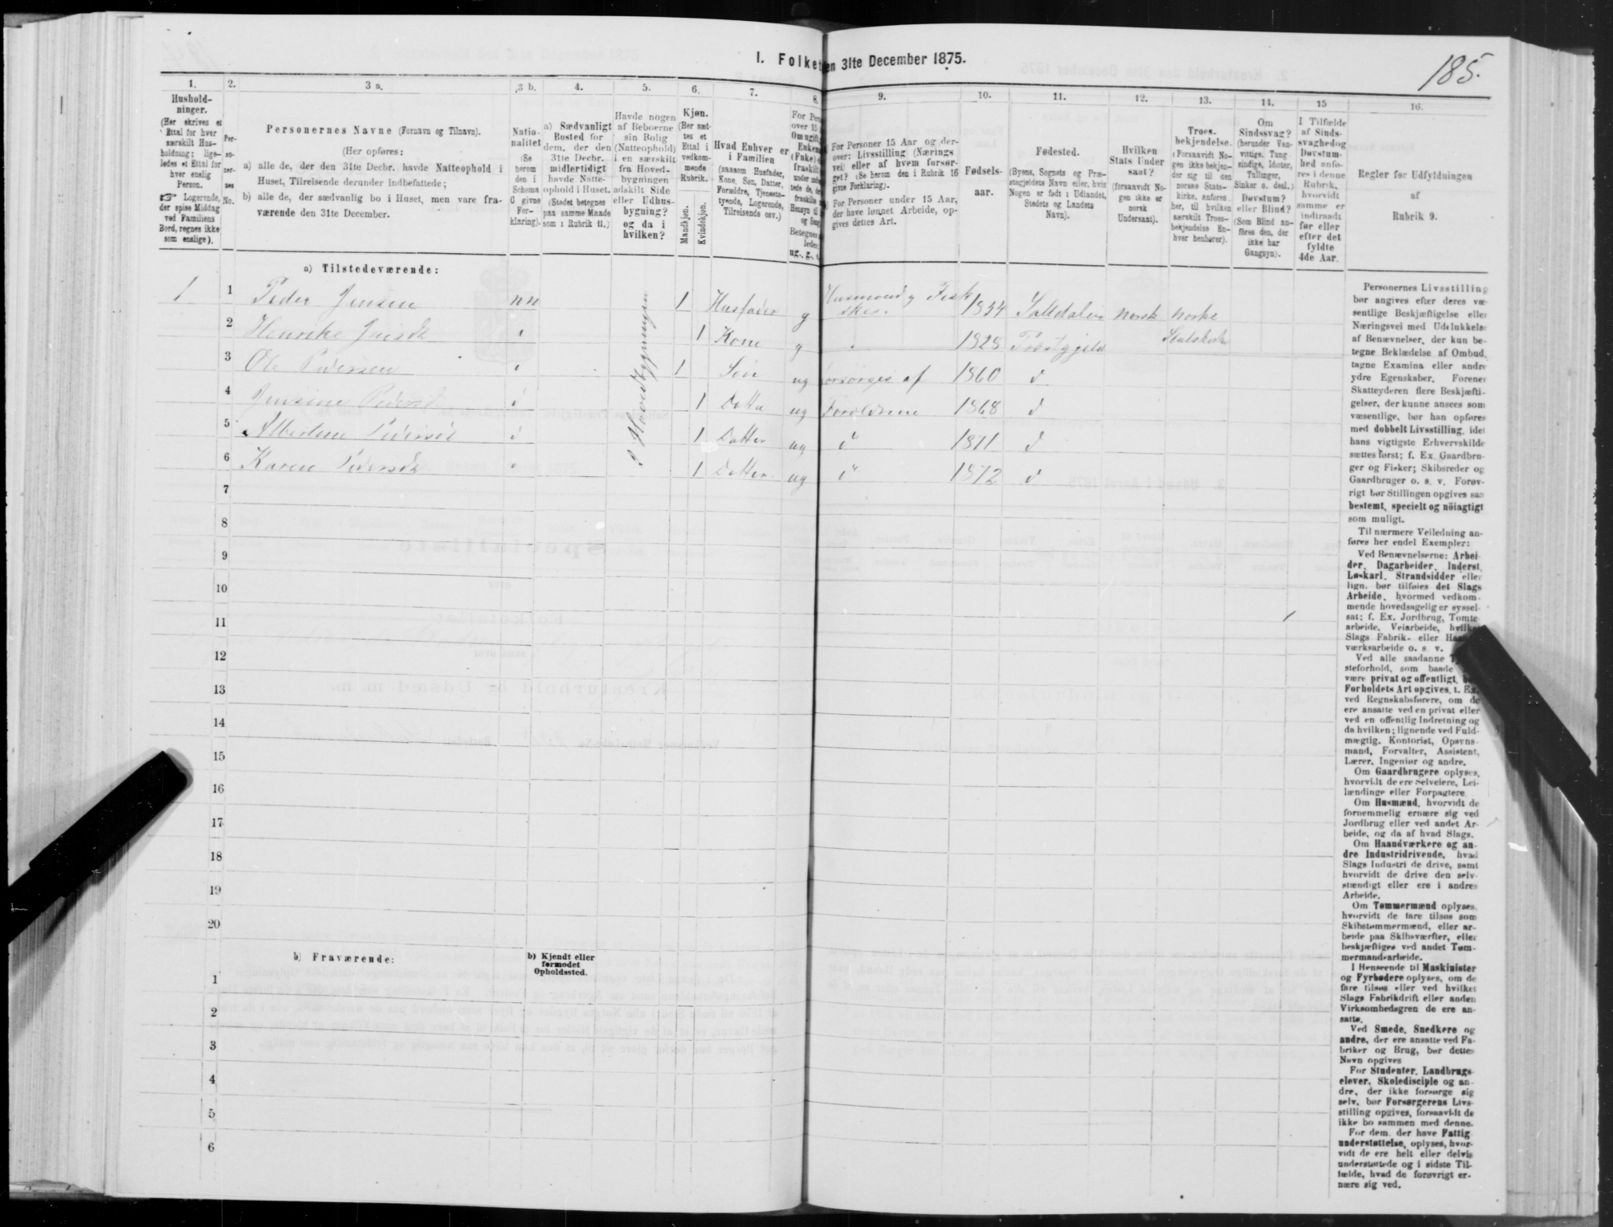 I. Folketællingen 31te December 1875.
185.
1.
Hushold-
ninger.
(Her skrives et
Ettal for hver
særskilt Hus-
holdning; lige-
ledes et Ettal for
hver enslig
Person.
☞ Logerende,
der spise Middag
ved Familiens
Bord, regnes ikke
som enslige).
2.
Per-
so-
ner-
nes
No.
3 a.
Personernes Navne (Fornavn og Tilnavn).
(Her opføres:
a) alle de, der den 31te Decbr. havde Natteophold i
Huset, Tilreisende derunder indbefattede;
b) alle de, der sædvanlig bo i Huset, men vare fra-
værende den 31te December.
3 b.
Natio-
nalitet
(Se
herom
den i
Schema
G givne
For-
klaring).
4.
a) Sædvanligt
Bosted for
dem, der den
31te Decbr.
midlertidigt
havde Natte-
ophold i Huset.
(Stedet betegnes
paa samme Maade
som i Rubrik 11.)
5.
Havde nogen
af Beboerne
sin Bolig
(Natteophold)
i en særskilt
fra Hoved-
bygningen
adskilt Side
eller Udhus-
bygning?
og da i
hvilken?
6.
Kjøn.
(Her sæt-
tes et
Ettal i
vedkom-
mende
Rubrik.
Mandkjøn.
Kvindekjøn.
7.
Hvad Enhver er
i Familien
(saasom Husfader,
Kone, Søn, Datter,
Forældre, Tjeneste-
tyende, Logerende,
Tilreisende osv.)
8.
9.
For Personer 15 Aar og der-
over: Livsstilling (Nærings
vei) eller af hvem forsør-
get? (Se herom den i Rubrik 16
givne Forklaring).
For Personer under 15 Aar,
der have lønnet Arbeide, op-
gives dettes Art.
10.
Fødsels-
aar.
11.
Fødested.
(Byens, Sognets og Præ-
stegjeldets Navn eller, hvis
Nogen er født i Udlandet,
Stedets og Landets
Navn).
12.
Hvilken
Stats Under
saat?
(forsaavidt No-
gen ikke er
norsk
Undersaat).
13.
Troes-
bekjendelse.
(Forsaavidt No-
gen ikke bekjen-
der sig til den
norske Stats-
kirke, anføres
her, til hvilken
særskilt Troes-
bekjendelse En-
hver henhører).
14.
Om
Sindssvag?
(herunder Van-
vittige, Tung
sindige, Idioter,
Tullinger,
Sinker o. desl.)
Døvstum?
eller Blind?
(Som Blind an-
føres den, der
ikke har
Gangsyn).
15
I Tilfælde
af Sinds-
svaghed og
Døvstum-
hed anfø-
res i denne
Rubrik,
hvorvidt
samme er
indtraadt
før eller
efter det
fyldte
4de Aar.
16.
Regler for Udfyldningen
af
Rubrik 9.
a) Tilstedeværende:
1 1 Peder Jensen nn 1 Husfader g Husmand g Fisker. 1834 Saltdalen norsk norske
2 Henrike 1 Kone g 1825 Præstegjeld Statskirke
3 Ole Pedersen 1 Søn ug forsørges af 1860 d
4 1 Datter ug Forældrene 1868 d
5 1 Datter ug d 1871 d
6 Karen 1 Datter ug d 1872 d
i Hovedbygningen
7
8
9
10
11
12
13
14
15
16
17
18
19
20
b) Fraværende:
b) Kjendt eller
formodet
Opholdssted.
1
2
3
4
5
6
Personernes Livsstilling
bør angives efter deres væ-
sentlige Beskjæftigelse eller
Næringsvei med Udelukkelse
af Benævnelser, der kun be-
tegne Beklædelse af Ombud,
tagne Examina eller andre
ydre Egenskaber. Forener
Skatteyderen flere Beskjæfti-
gelser, der kunne ansees som
væsentlige, bør han opføres
med dobbelt Livsstilling, idet
hans vigtigste Erhvervskilde
sættes først; f. Ex. Gaardbru-
ger og Fisker; Skibsreder og
Gaardbruger o. s. v. Forøv-
rigt bør Stillingen opgives saa
bestemt, specielt og nöiagtigt
som muligt.
Til nærmere Veiledning an-
føres her endel Exempler:
Ved Benævnelserne: Arbei-
der, Dagarbeider, Inderst,
Løskarl, Strandsidder eller
lign. bør tilføies det Slags
Arbeide, hvormed vedkom-
mende hovedsagelig er syssel-
sat; f. Ex. Jordbrug, Tomte-
arbeide, Veiarbeide, hvilket
Slags Fabrik- eller Haand-
værksarbeide o. s. v.
Ved alle saadanne
steforhold, som baade
være privat og offentligt,
Forholdets Art opgives, t. Ex.
ved Regnskabsførere, om de
ere ansatte ved en privat eller
ved en offentlig Indretning og
da hvilken; lignende ved Fuld-
mægtig, Kontorist, Opsyns-
mand, Forvalter, Assistent,
Lærer, Ingeniør og andre.
Om Gaardbrugere oplyses,
hvorvidt de ere Selveiere, Lei-
lændinge eller Forpagtere.
Om Husmænd, hvorvidt de
fornemmelig ernære sig ved
Jordbrug eller ved andet Ar-
beide, og da af hvad Slags.
Om Haandværkere og an-
dre Industridrivende, hvad
Slags Industri de drive, samt
hvorvidt de drive den selv-
stændigt eller ere i andres
Arbeide.
Om Tømmermænd oplyses,
hvorvidt de fare tilsøs som
Skibstømmermænd, eller ar-
beide paa Skibsværfter, eller
beskjæftiges ved andet Tøm-
mermandsarbeide.
I Henseende til Maskinister
og Fyrbødere oplyses, om de
fare tilsøs eller ved hvilket
Slags Fabrikdrift eller anden
Virksomhedsgren de ere an-
satte.
Ved Smede, Snedkere og
andre, der ere ansatte ved Fa-
briker og Brug, bør dettes
Navn opgives
For Studenter, Landbrugs-
elever, Skoledisciple og an-
dre, der ikke forsørge sig
selv, bør Forsørgerens Livs-
stilling opgives, forsaavidt de
ikke bo sammen med denne.
For dem, der have Fattig
understøttelse, oplyses, hvor-
vidt de ere helt eller delvis
understøttede og i sidste Til-
fælde, hvad de forøvrigt er-
nære sig ved.